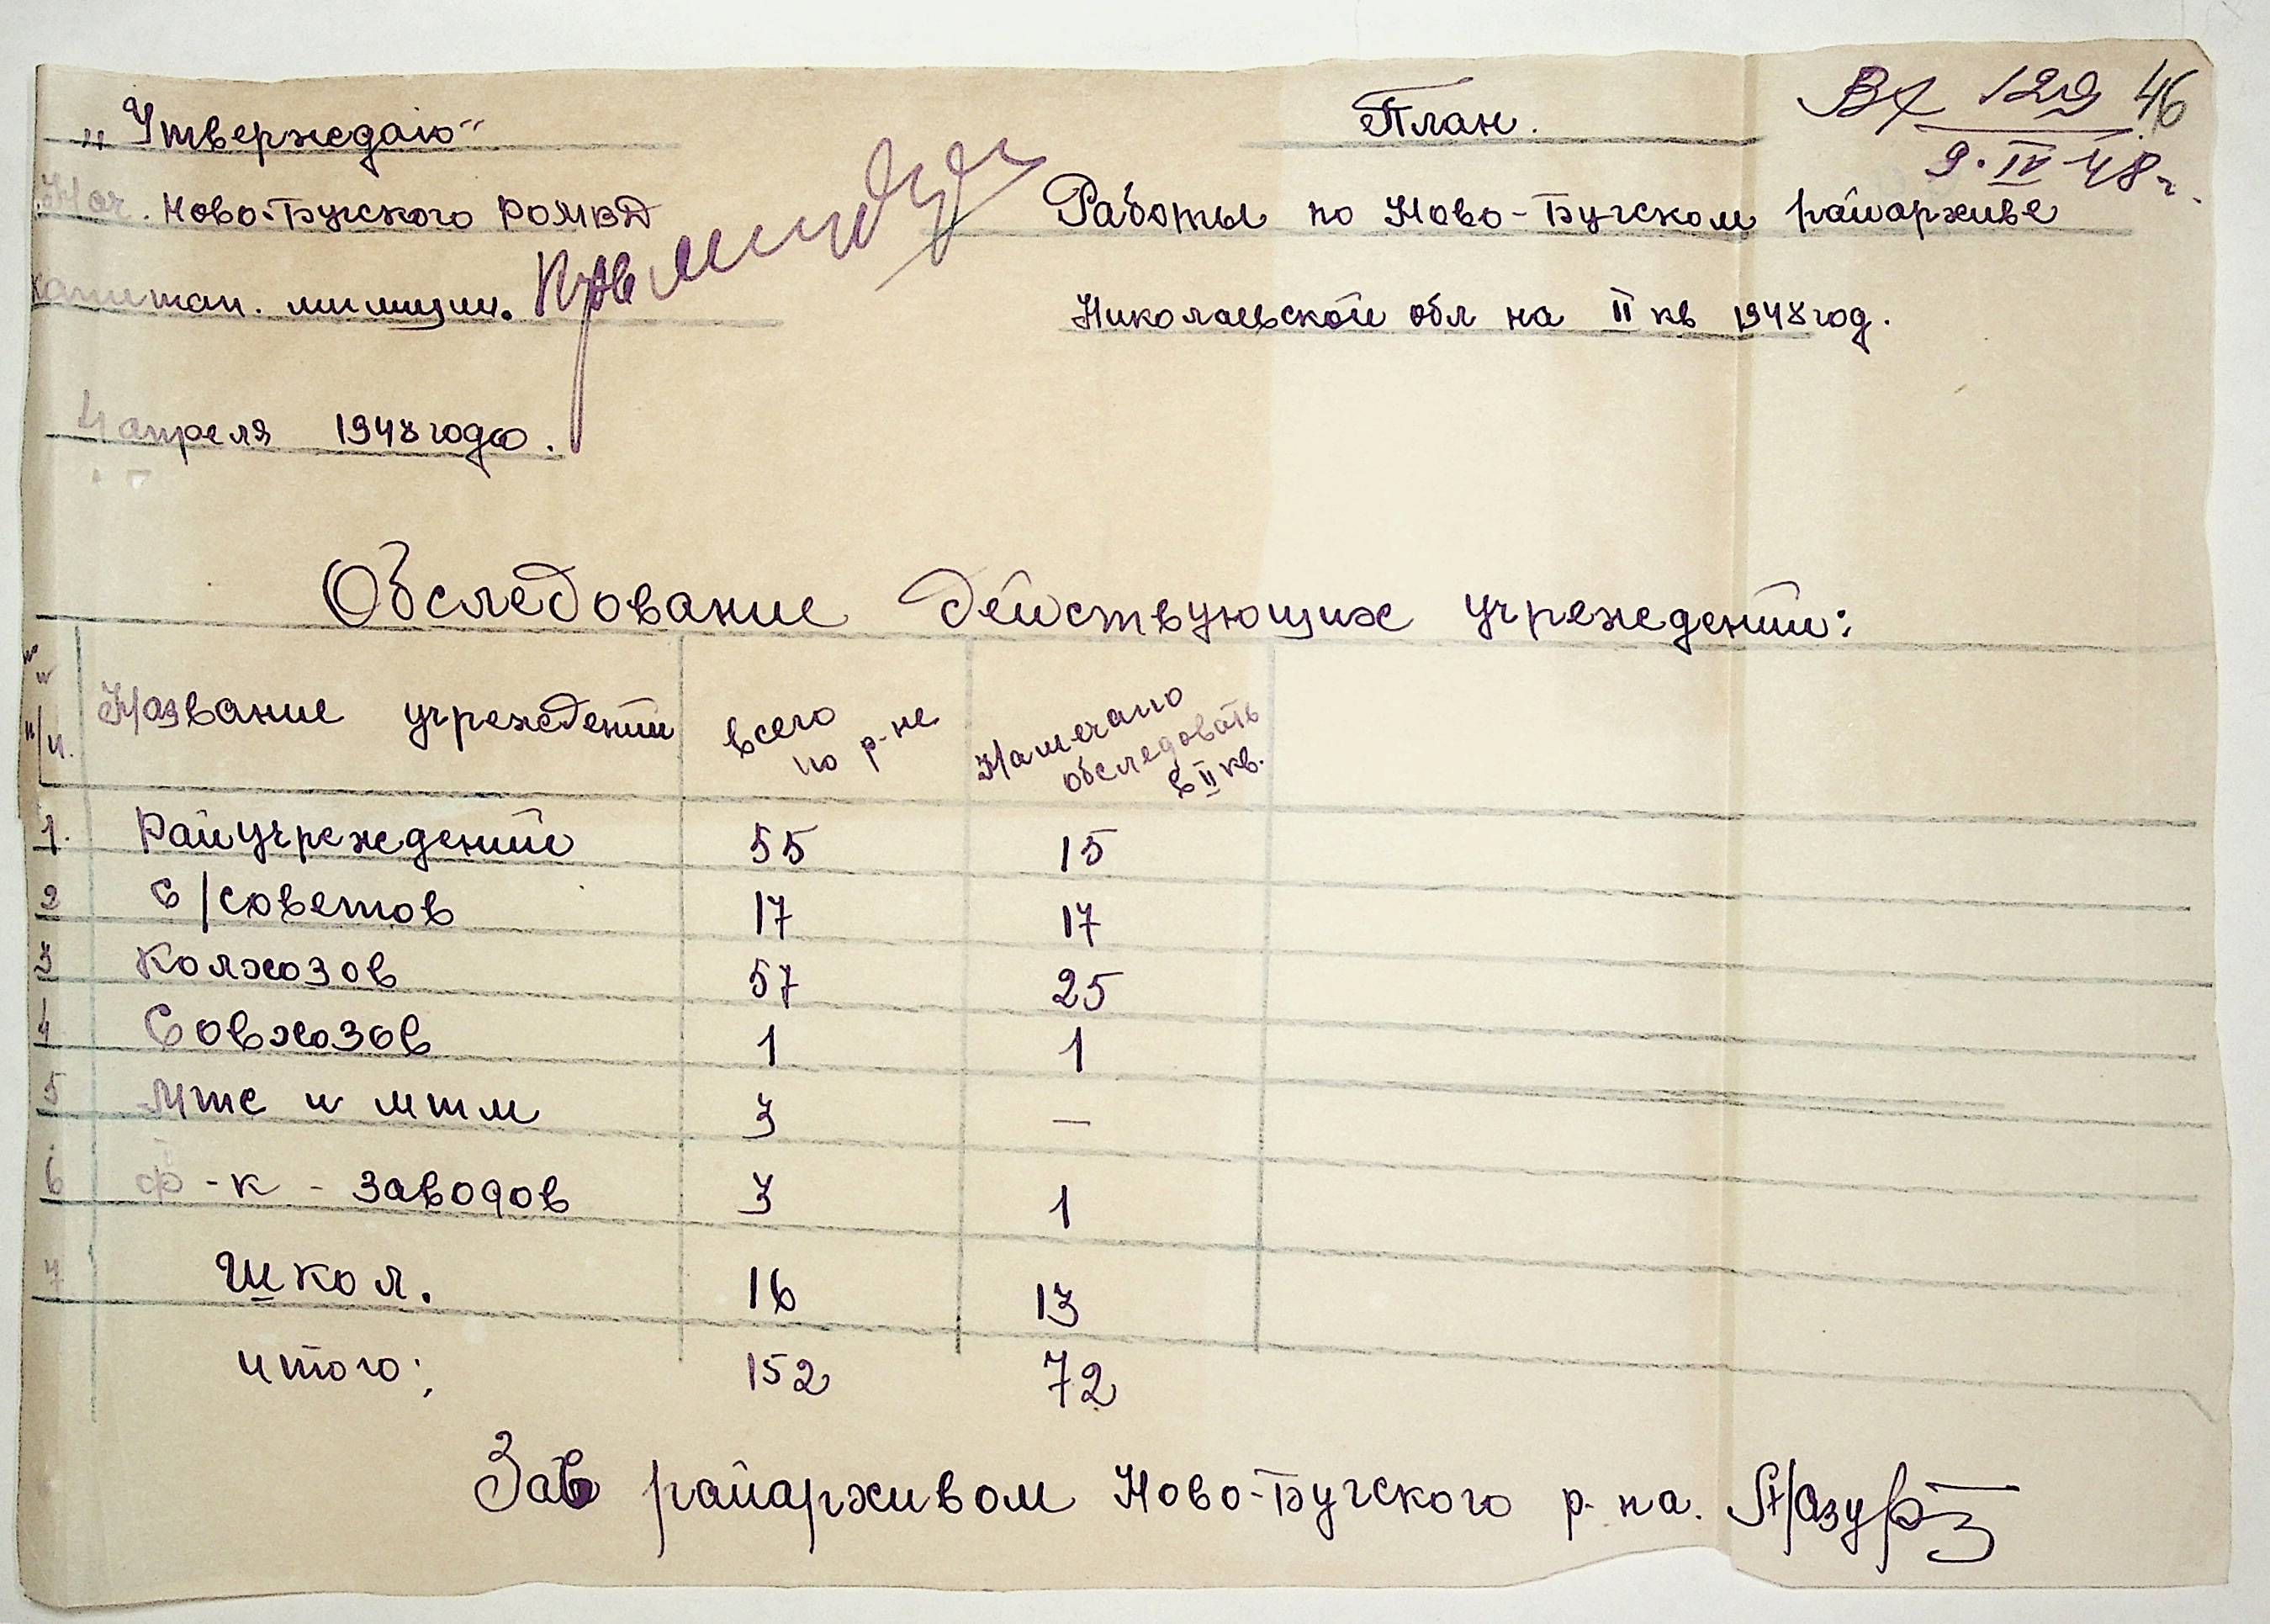 Вх 129 46
9.IV-48г.
„Утверждаю"
План.
Нач. Ново-Бугского РОМВД
Работы по Ново-Бугском райархиве
капитан. милиции.
Николаевской обл на II кв 1948 год.
4 апреля 1948 года.
Обследование действующих учреждений:
№№ п/п. Название учреждений всего по р-не Намечано обследовать в II кв.
1. Райучреждений 55 15
2 С/советов 17 17
3 Колхозов 57 25
4 Совхозов 1 1
5 Мтс и мтм 3 —
6 ф-к - заводов 3 1
7 Школ. 16 13
Итого: 152 72
Зав райархивом Ново-Бугского р-на.